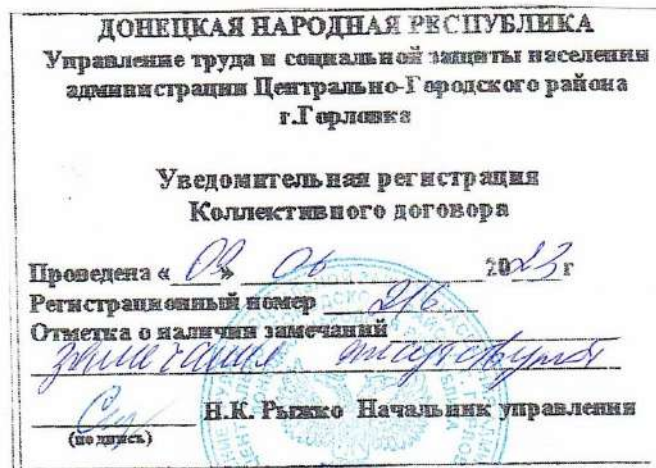 ДОНЕЦКАЯ НАРОДНАЯ РЕСПУБЛИКА
Управление труда и социальной защиты населения
администрации Центрально-Городского района
г.Горловка
Уведомительная регистрация
Коллективного договора
Проведена « 09 » 06 2023 г
Регистрационный номер 216
Отметка о наличии замечаний
замечания отсутствуют
Н.К. Рыжко Начальник управления
(подпись)